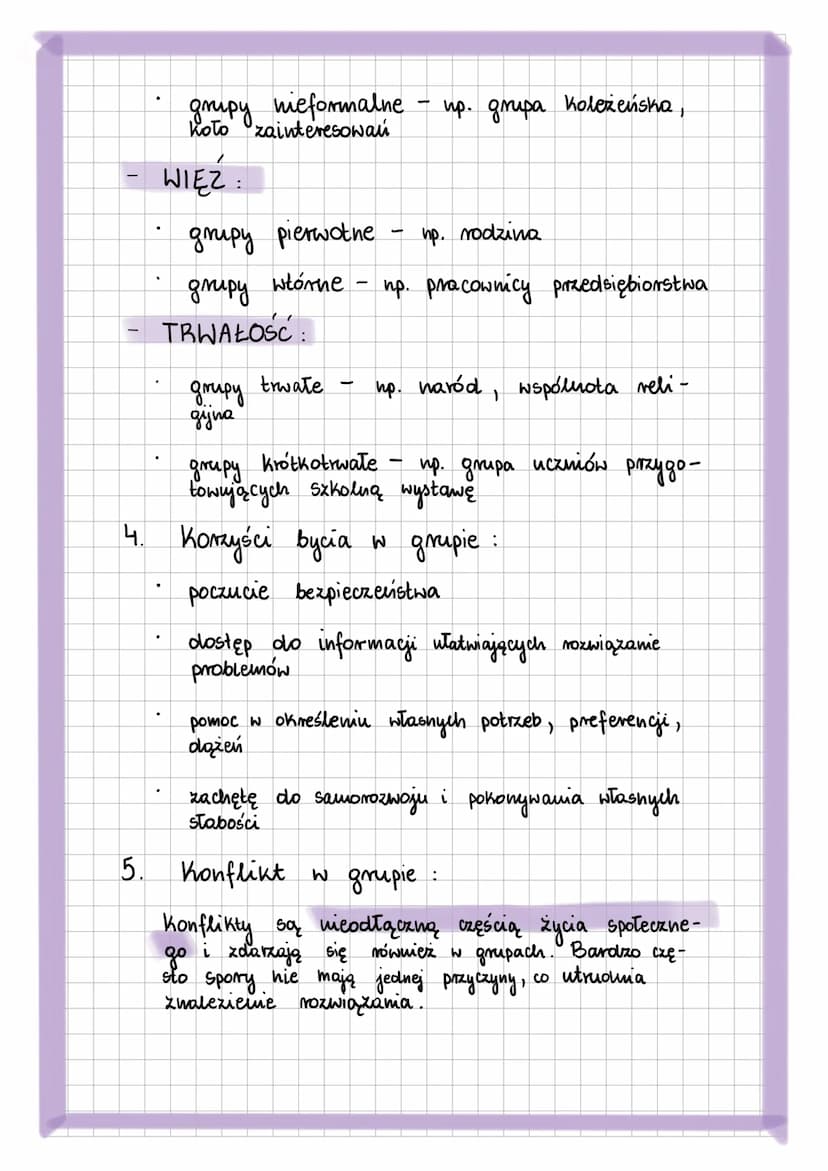 · grupy nieformalne - np. grupa koleżeńska,
koło zainteresowań
- WIĘŹ:
· grupy pierwotne - np. rodzina
· grupy wtórne - np. pracownicy przedsiębiorstwa
- TRWAŁOŚĆ:
· grupy trwałe - np. naród, wspólnota reli-
gijna
· grupy krótkotrwałe - np. grupa uczniów przygo-
towujących szkolną wystawę
4. Korzyści bycia w grupie:
· poczucie bezpieczeństwa
· dostęp do informacji ułatwiających rozwiązanie
problemów
· pomoc w określeniu własnych potrzeb, preferencji,
dążeń
· zachętę do samorozwoju i pokonywania własnych
słabości
5. Konflikt w grupie:
Konflikty są nieodłączną częścią życia społeczne-
go i zdarzają się również w grupach. Bardzo czę-
sto spory nie mają jednej przyczyny, co utrudnia
znalezienie rozwiązania.